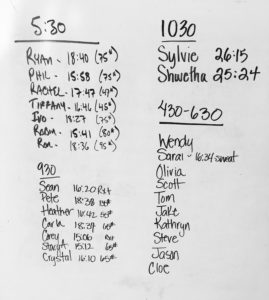 5:30
RYAN - 18:40 (75#)
PHIL - 15:58 (75#)
RACHEL - 17:47
TIFFANY - 16:46
IVO - 18:27 (75#)
ROBM - 15:41 (80#)
Ron - 18:36 (95#)
930
Sean 16:20 RX+
Pete 18:38
Heather 16:42 55#
Carla 18:39 65#
Carey 15:06
Stacy A 15:12 65#
Crystal 16:10 65#
1030
Sylvie 26:15
Shwetha 25:24
430-630
Wendy
Sarai - 16:34 sweat
Olivia
Scott
Tom
Jake
Kathryn
Steve
Jason
Cloe